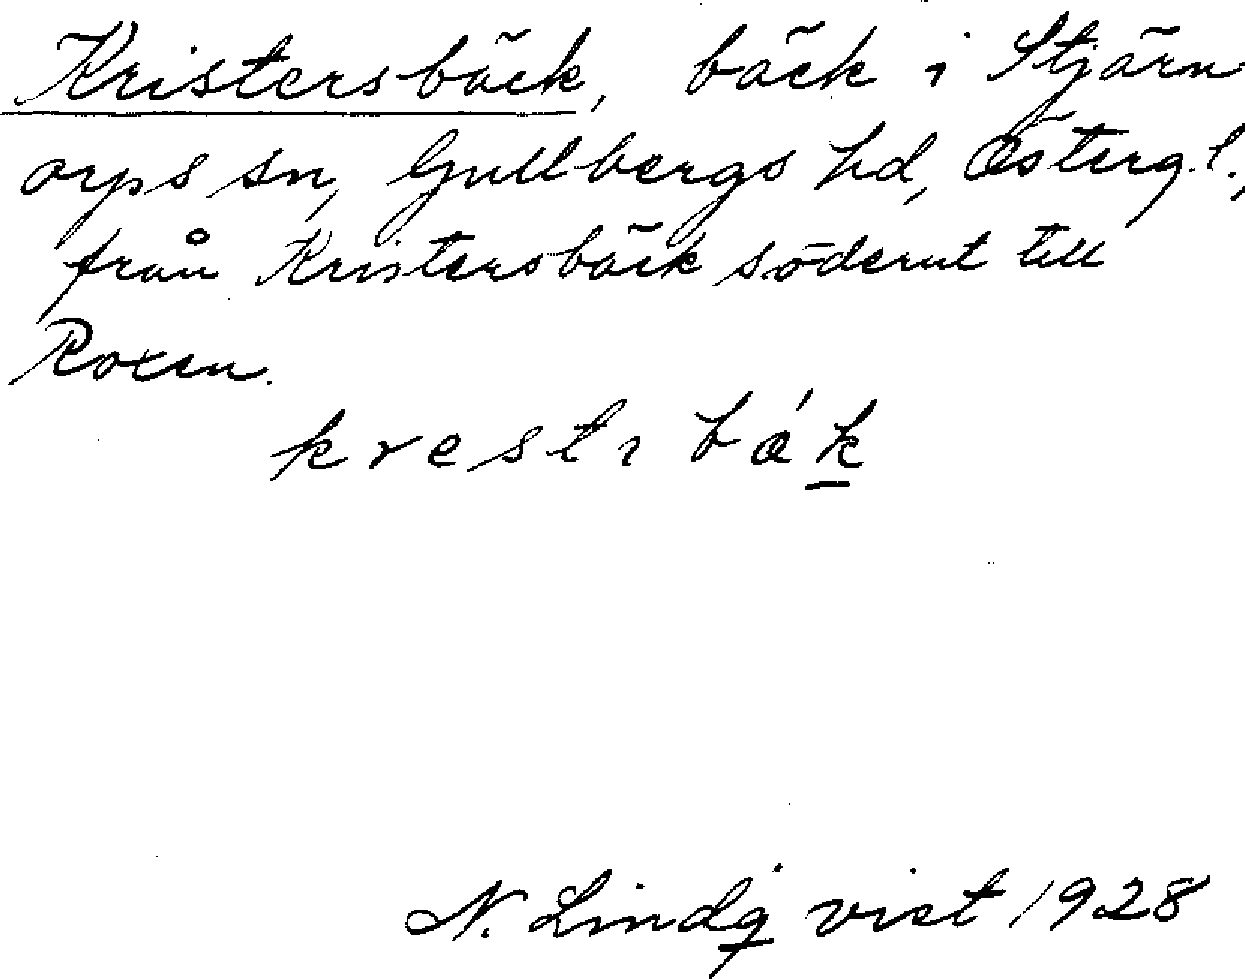 Kristersbäck, bäck i Stjärn
orps sn, Gullbergs hd, Östergl.,
från Kristersbäck söderut till
Roxen.
krestı bák
N. Lindqvist 1928